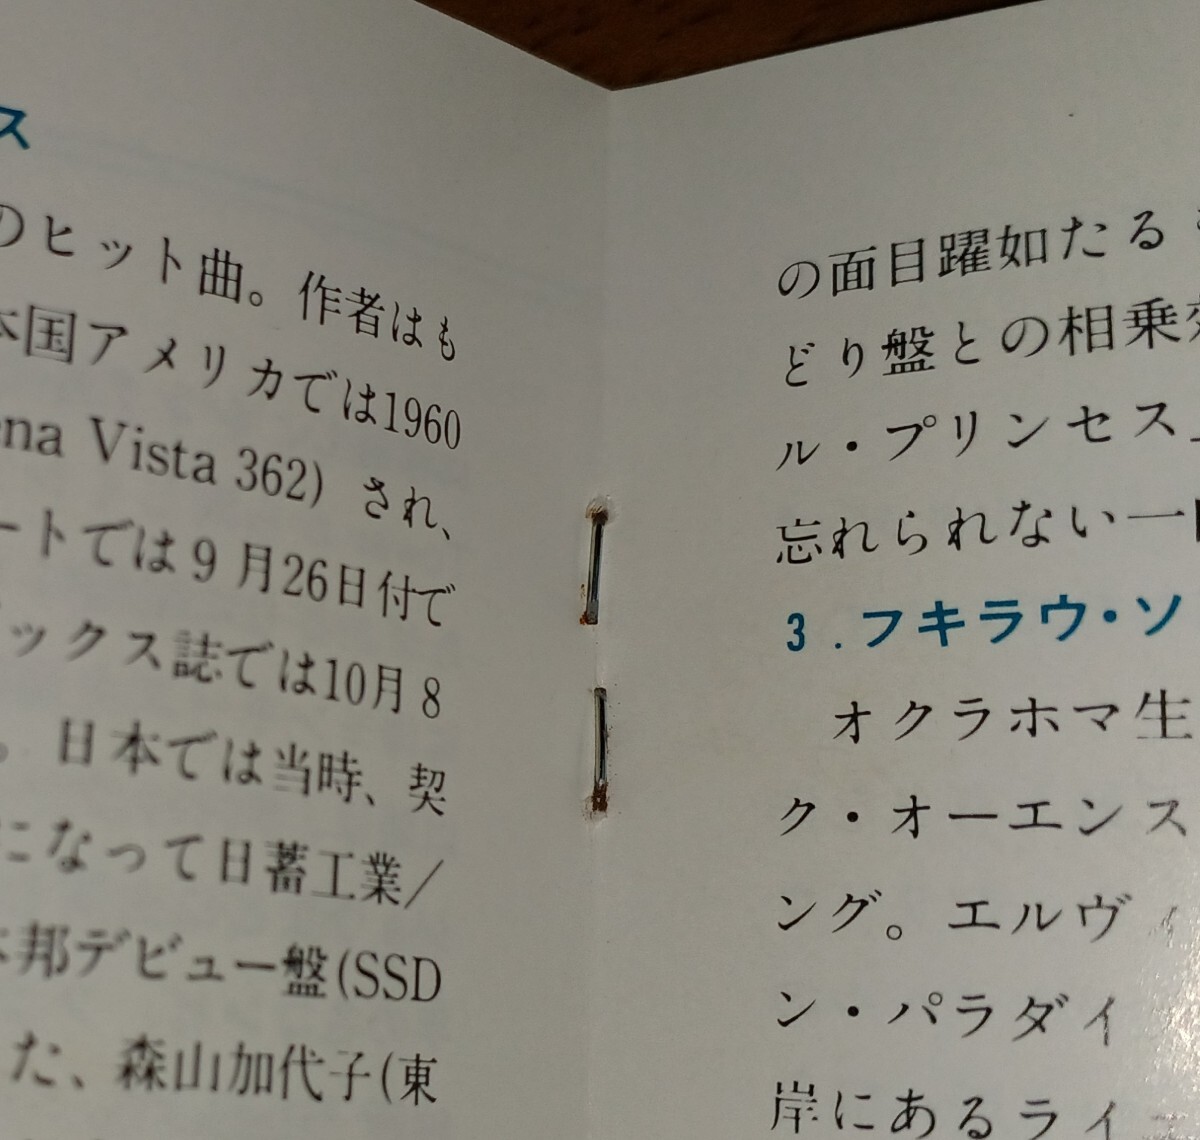 ス
のヒット曲。作者はも
本国アメリカでは1960
ena Vista 362) され、
ートでは9月26日付で
ックス誌では10月8
。日本では当時、契
になって日蓄工業/
本邦デビュー盤(SSD
た、森山加代子(東
の面目躍如たる
どり盤との相乗効
ル・プリンセス
忘れられない一
3.フキラウ・ソ
オクラホマ生
ク・オーエンス
ング。エルヴィ
ン・パラダイ
岸にあるライ